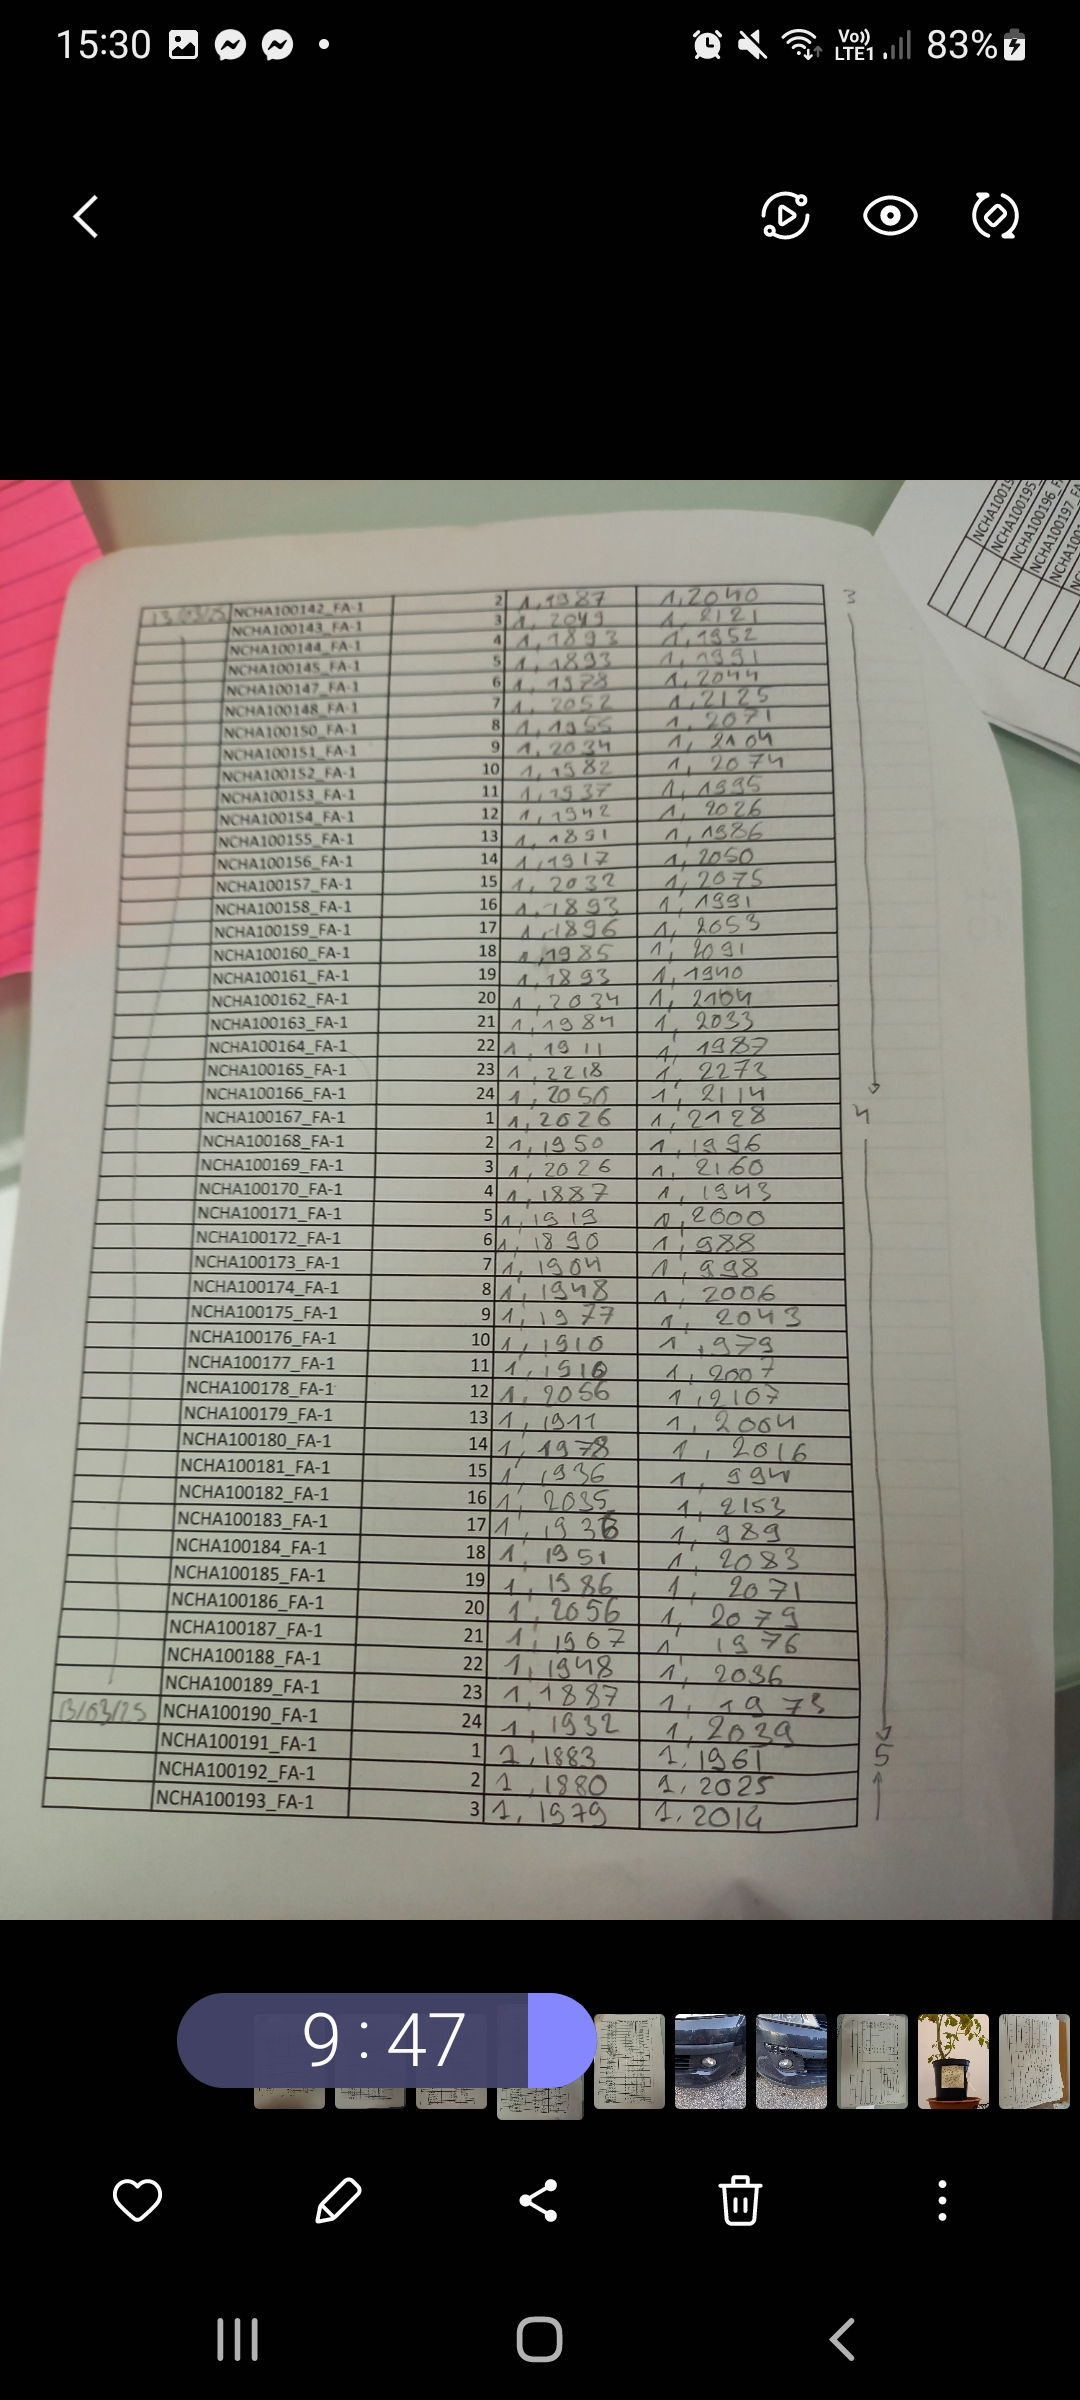 15:30 Vo)) LTE1 83%
13/03/25 NCHA100142_FA-1 2 1,1987 1,2040 3
NCHA100143_FA-1 3 1,2049 1,2121
NCHA100144_FA-1 4 1,1893 1,1952
NCHA100145_FA-1 5 1,1893 1,1991
NCHA100147_FA-1 6 1,1978 1,2044
NCHA100148_FA-1 7 1,2052 1,2125
NCHA100150_FA-1 8 1,1955 1,2071
NCHA100151_FA-1 9 1,2034 1,2104
NCHA100152_FA-1 10 1,1982 1,2074
NCHA100153_FA-1 11 1,1937 1,1995
NCHA100154_FA-1 12 1,1942 1,2026
NCHA100155_FA-1 13 1,1891 1,1986
NCHA100156_FA-1 14 1,1917 1,2050
NCHA100157_FA-1 15 1,2032 1,2075
NCHA100158_FA-1 16 1,1893 1,1991
NCHA100159_FA-1 17 1,1896 1,2053
NCHA100160_FA-1 18 1,1985 1,2091
NCHA100161_FA-1 19 1,1893 1,1940
NCHA100162_FA-1 20 1,2034 1,2104
NCHA100163_FA-1 21 1,1984 1,2033
NCHA100164_FA-1 22 1,1911 1,1987
NCHA100165_FA-1 23 1,2218 1,2273
NCHA100166_FA-1 24 1,2050 1,2114
NCHA100167_FA-1 1 1,2026 1,2128 4
NCHA100168_FA-1 2 1,1950 1,1996
NCHA100169_FA-1 3 1,2026 1,2160
NCHA100170_FA-1 4 1,1887 1,1943
NCHA100171_FA-1 5 1,1919 1,2000
NCHA100172_FA-1 6 1,1890 1,988
NCHA100173_FA-1 7 1,1904 1,998
NCHA100174_FA-1 8 1,1948 1,2006
NCHA100175_FA-1 9 1,1977 1,2043
NCHA100176_FA-1 10 1,1910 1,979
NCHA100177_FA-1 11 1,1910 1,2007
NCHA100178_FA-1 12 1,2056 1,2107
NCHA100179_FA-1 13 1,1911 1,2004
NCHA100180_FA-1 14 1,1978 1,2016
NCHA100181_FA-1 15 1,1936 1,994
NCHA100182_FA-1 16 1,2035 1,2153
NCHA100183_FA-1 17 1,1936 1,989
NCHA100184_FA-1 18 1,1951 1,2083
NCHA100185_FA-1 19 1,1986 1,2071
NCHA100186_FA-1 20 1,2056 1,2079
NCHA100187_FA-1 21 1,1907 1,1976
NCHA100188_FA-1 22 1,1948 1,2036
NCHA100189_FA-1 23 1,1887 1,1973
13/03/25 NCHA100190_FA-1 24 1,1932 1,2039
NCHA100191_FA-1 1 1,1883 1,1961 5
NCHA100192_FA-1 2 1,1880 1,2025
NCHA100193_FA-1 3 1,1979 1,2014
NCHA100195
NCHA100196_F
NCHA100197_FA
9:47